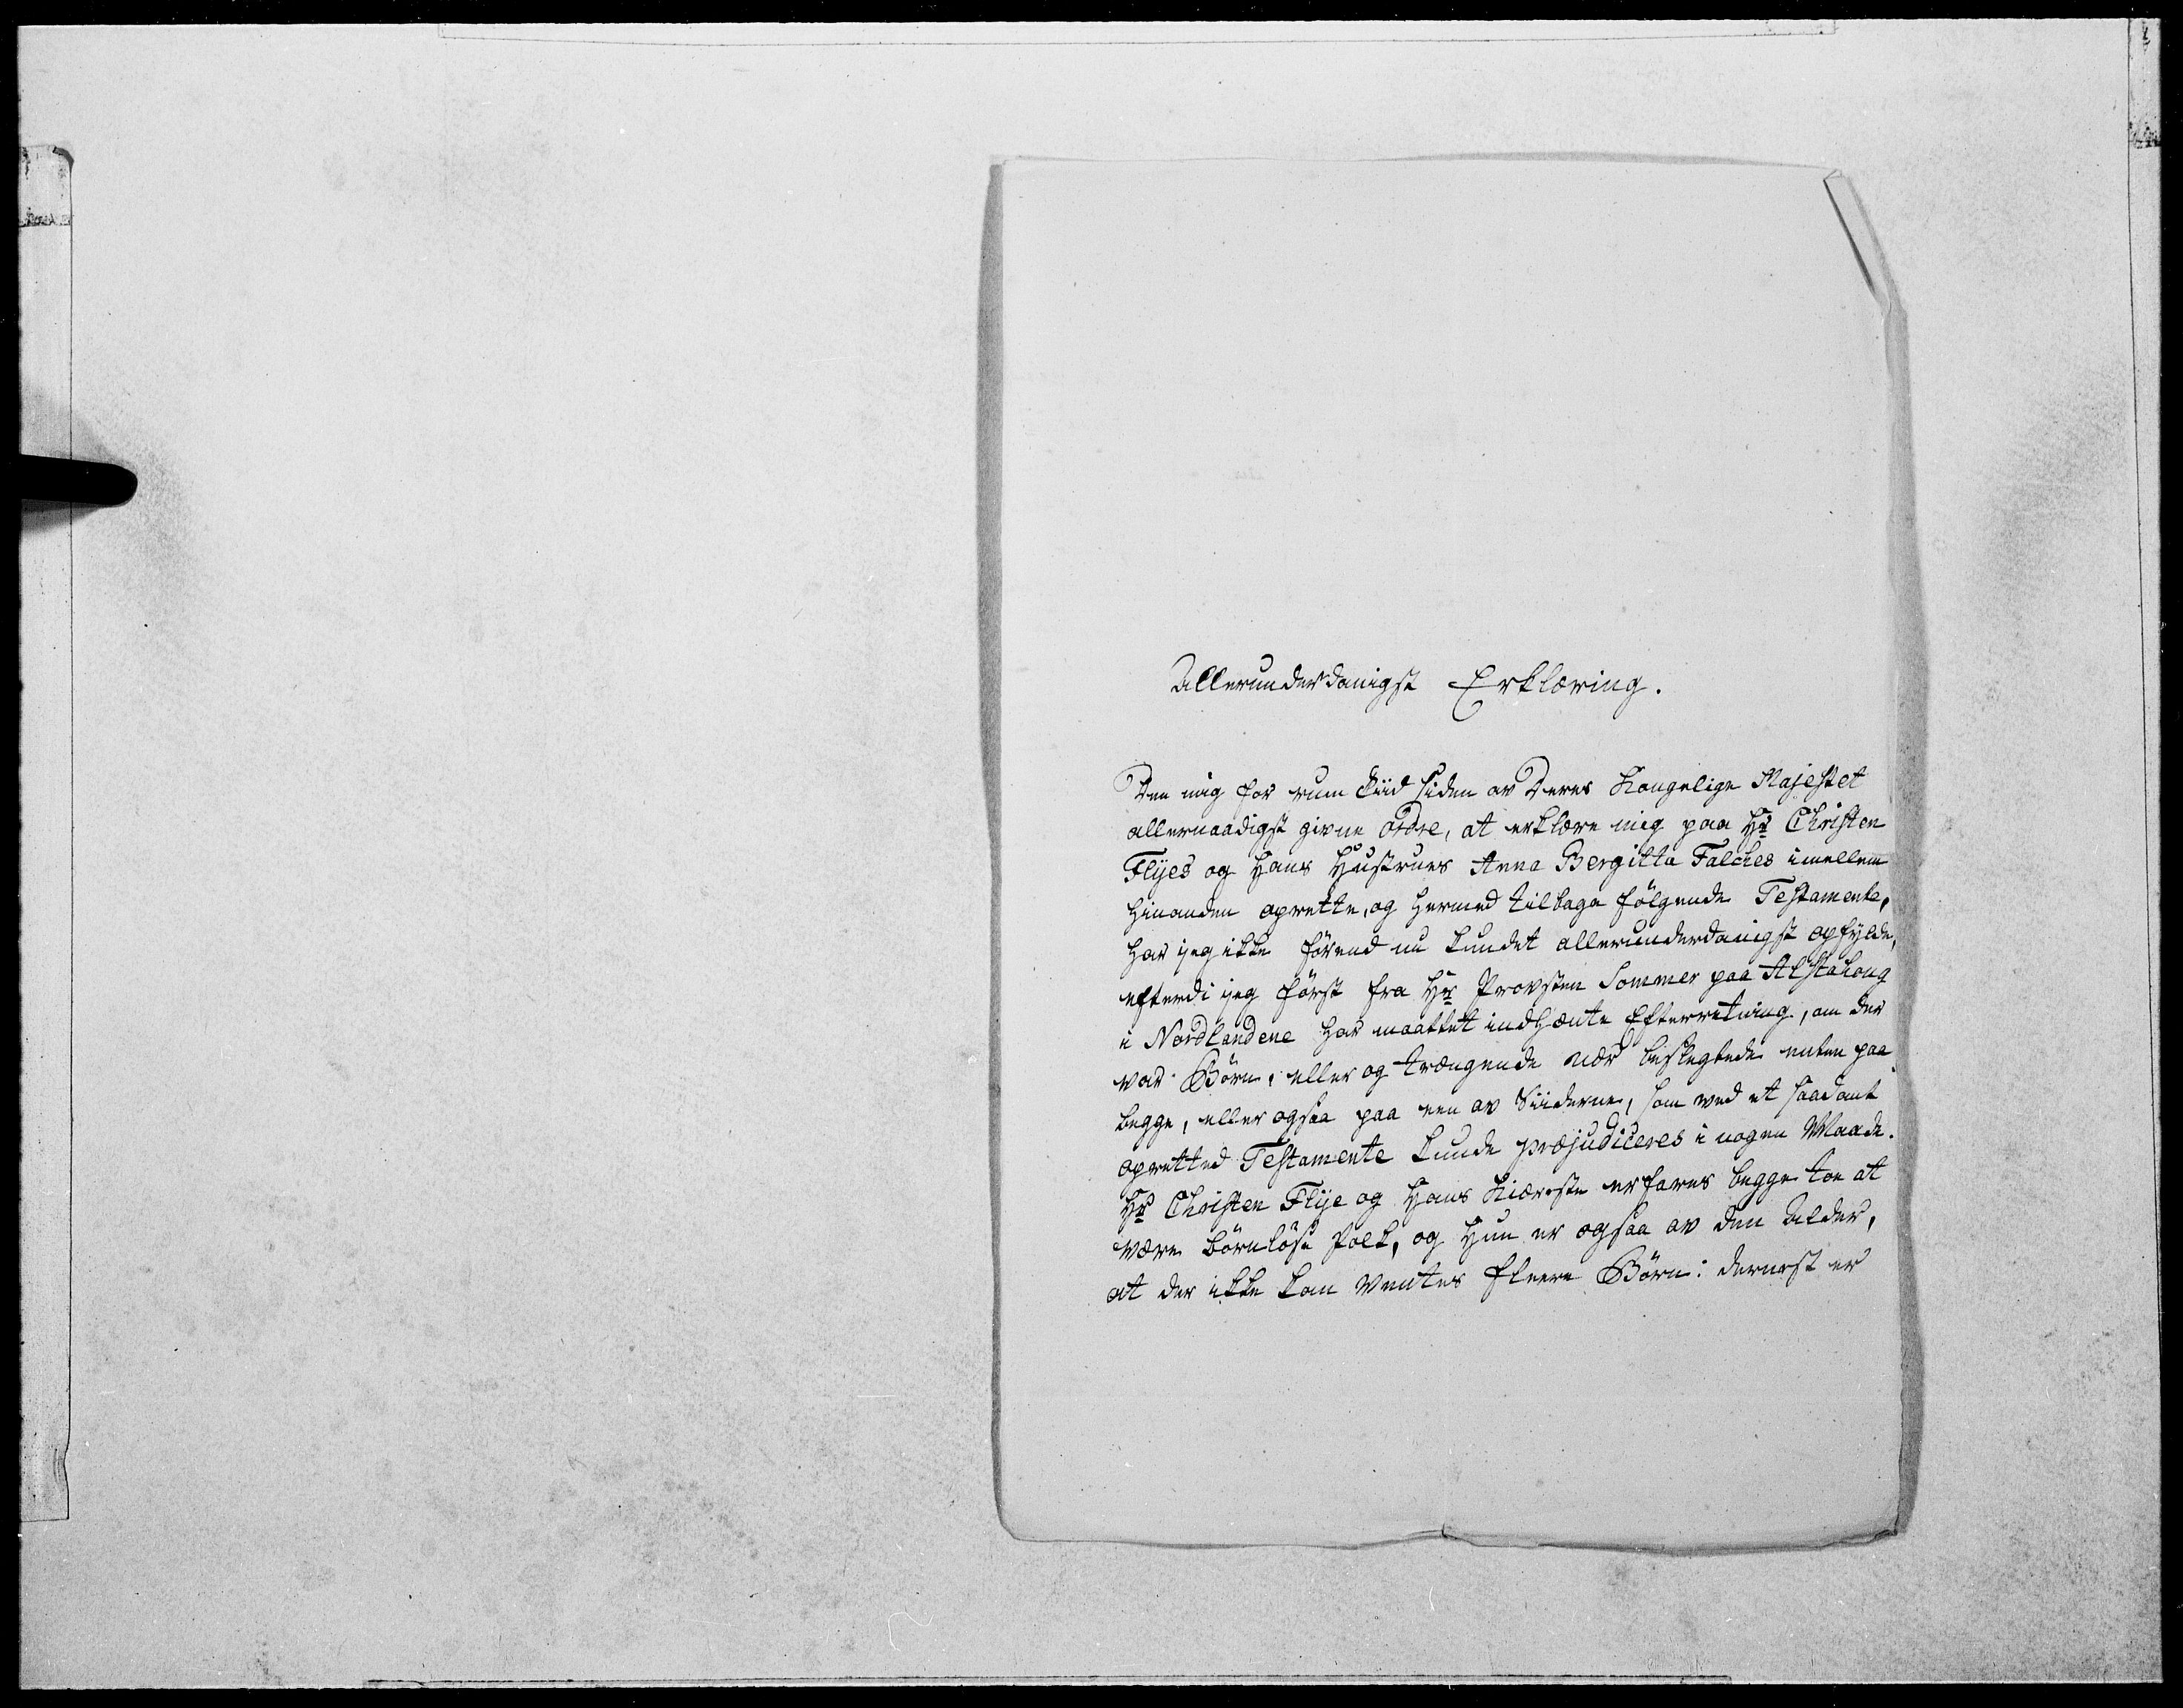 Allerunderdanigst Erklæring.
Den mig for rum tiid siden av Deres Kongelige Majestet
allernaadigst givne ordre, at erklære mig paa Hr Christen
Flÿes og Hans Hustrues Anna Bergitta Falches imellem
hinanden oprette, og hermed tilbage følgende Testamente,
har jeg ikke förend nu kundet allerunderdanigst opfylde,
efterdi jeg först fra Hr Provsten Sommer paa Alstahoug
i Nordlandene har maattet indhænte Efterretning, om der
var Börn, eller og trængende nær beslegtede enten paa
begge, eller ogsaa paa een av Siiderne, som ved et saadant
opretted Testamente kunde præjudiceres i nogen Maade.
Hr Christen Flÿe og Hans Kiæreste erfares begge toe at
være börnlöse Folk, og Hun er ogsaa av den Alder,
at der ikke kan ventes fleere Börn: dernest er